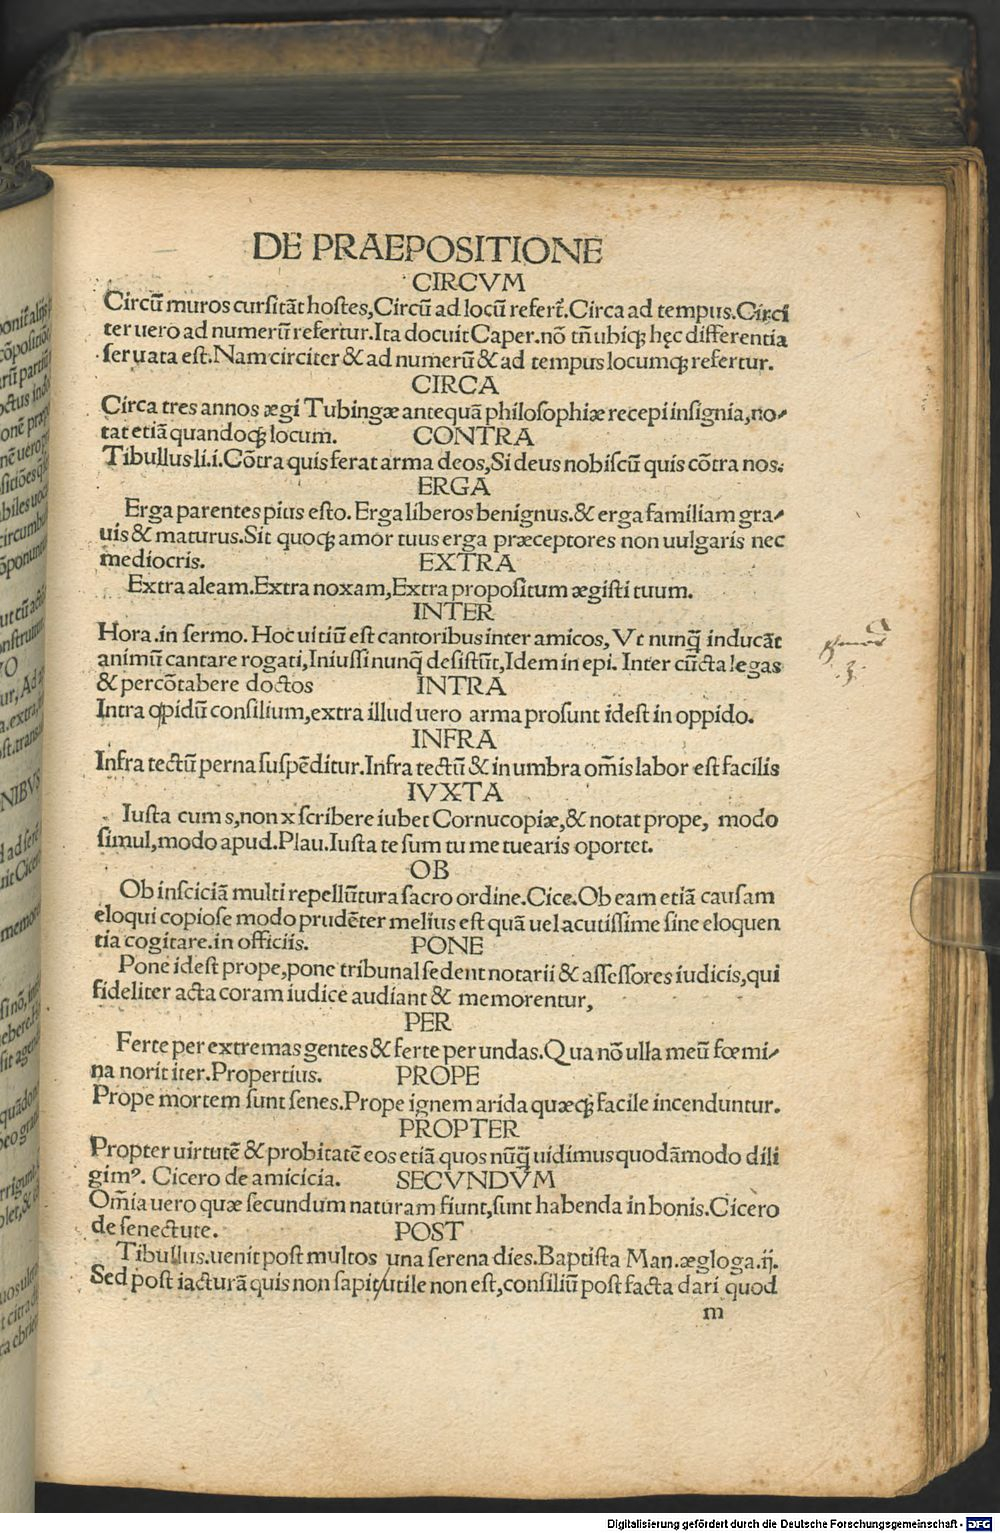 DE PRAEPOSITIONE
CIRCVM
Circũ muros cursitãt hostes,Circũ ad locũ refert̃.Circa ad tempus.Circi
ter uero ad numerũ refertur.Ita docuit Caper.nõ tñ ubiqꝫ hęc differentia
seruata est.Nam circiter & ad numerũ & ad tempus locumqꝫ refertur.
CIRCA
Circa tres annos ægi Tubingæ antequã philosophiæ recepi insignia,no-
tat etiã quandoqꝫ locum. CONTRA
Tibullus li.i.Cõtra quis ferat arma deos,Si deus nobiscũ quis cõtra nos.
ERGA
Erga parentes pius esto. Erga liberos benignus.& erga familiam gra-
uis & maturus.Sit quoqꝫ amor tuus erga præceptores non uulgaris nec
mediocris. EXTRA
Extra aleam.Extra noxam,Extra propositum ægisti tuum.
INTER
Hora.in sermo. Hoc uitiũ est cantoribus inter amicos, Vt nunq̃ inducãt
animũ cantare rogati,Iniussi nunq̃ desistũt,Idem in epi. Inter cũcta legas
& percõtabere doctos INTRA
Intra oppidũ consilium,extra illud uero arma prosunt idest in oppido.
INFRA
Infra tectũ perna suspẽditur.Infra tectũ & in umbra om̃is labor est facilis
IVXTA
Iusta cum s,non x scribere iubet Cornucopiæ,& notat prope, modo
simul,modo apud.Plau.Iusta te sum tu me tuearis oportet.
OB
Ob insciciã multi repellũtur a sacro ordine.Cice.Ob eam etiã causam
eloqui copiose modo prudẽter melius est quã uel acutissime sine eloquen
tia cogitare.in officiis. PONE
Pone idest prope,pone tribunal sedent notarii & assessores iudicis,qui
fideliter acta coram iudice audiant & memorentur,
PER
Ferte per extremas gentes & ferte per undas.Qua nõ ulla meũ fœmi-
na norit iter.Propertius. PROPE
Prope mortem sunt senes.Prope ignem arida quæqꝫ facile incenduntur.
PROPTER
Propter uirtutẽ & probitatẽ eos etiã quos nũq̃ uidimus quodãmodo dili
gimꝰ. Cicero de amicicia. SECVNDVM
Om̃ia uero quæ secundum naturam fiunt,sunt habenda in bonis.Cicero
de senectute. POST
Tibullus.uenit post multos una serena dies.Baptista Man.ægloga.ij.
Sed post iacturã quis non sapit/utile non est,consiliũ post facta dari quod
m
Digitalisierung gefördert durch die Deutsche Forschungsgemeinschaft - DFG